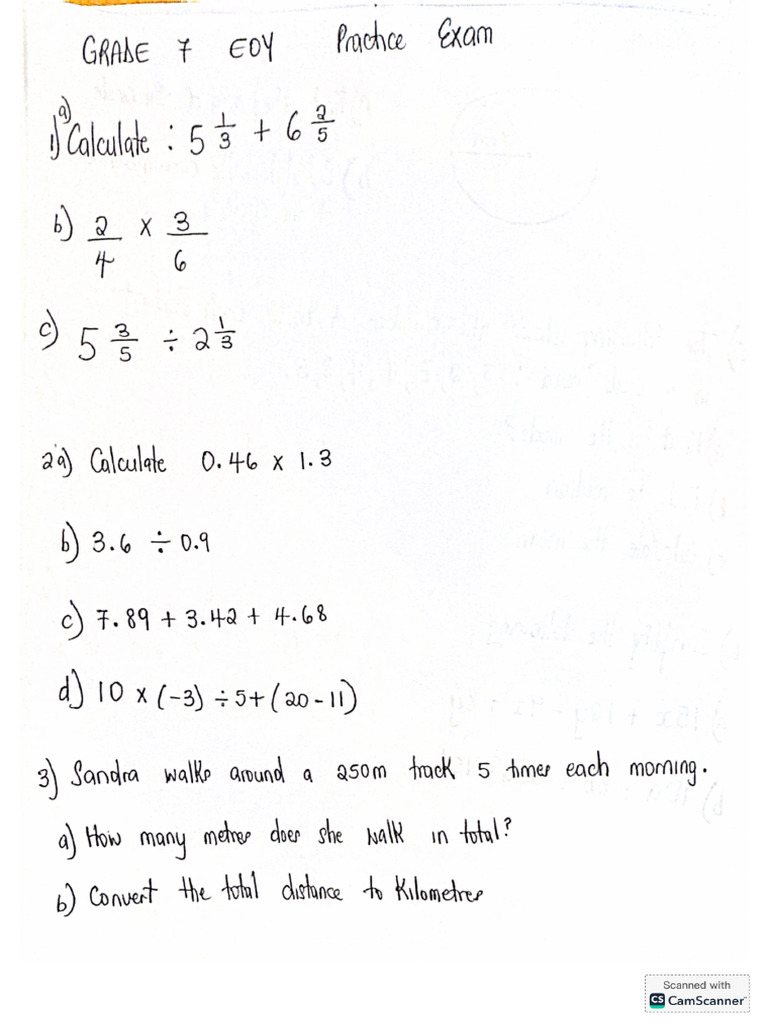 GRADE 7 EOY Practice Exam
1) a) Calculate : 5 1/3 + 6 2/5
b) 2/4 x 3/6
c) 5 3/5 ÷ 2 1/3
2 a) Calculate 0.46 x 1.3
b) 3.6 ÷ 0.9
c) 7.89 + 3.42 + 4.68
d) 10 x (-3) ÷ 5 + (20 - 11)
3) Sandra walks around a 250m track 5 times each morning.
a) How many metres does she walk in total?
b) Convert the total distance to Kilometres
Scanned with
CS CamScanner